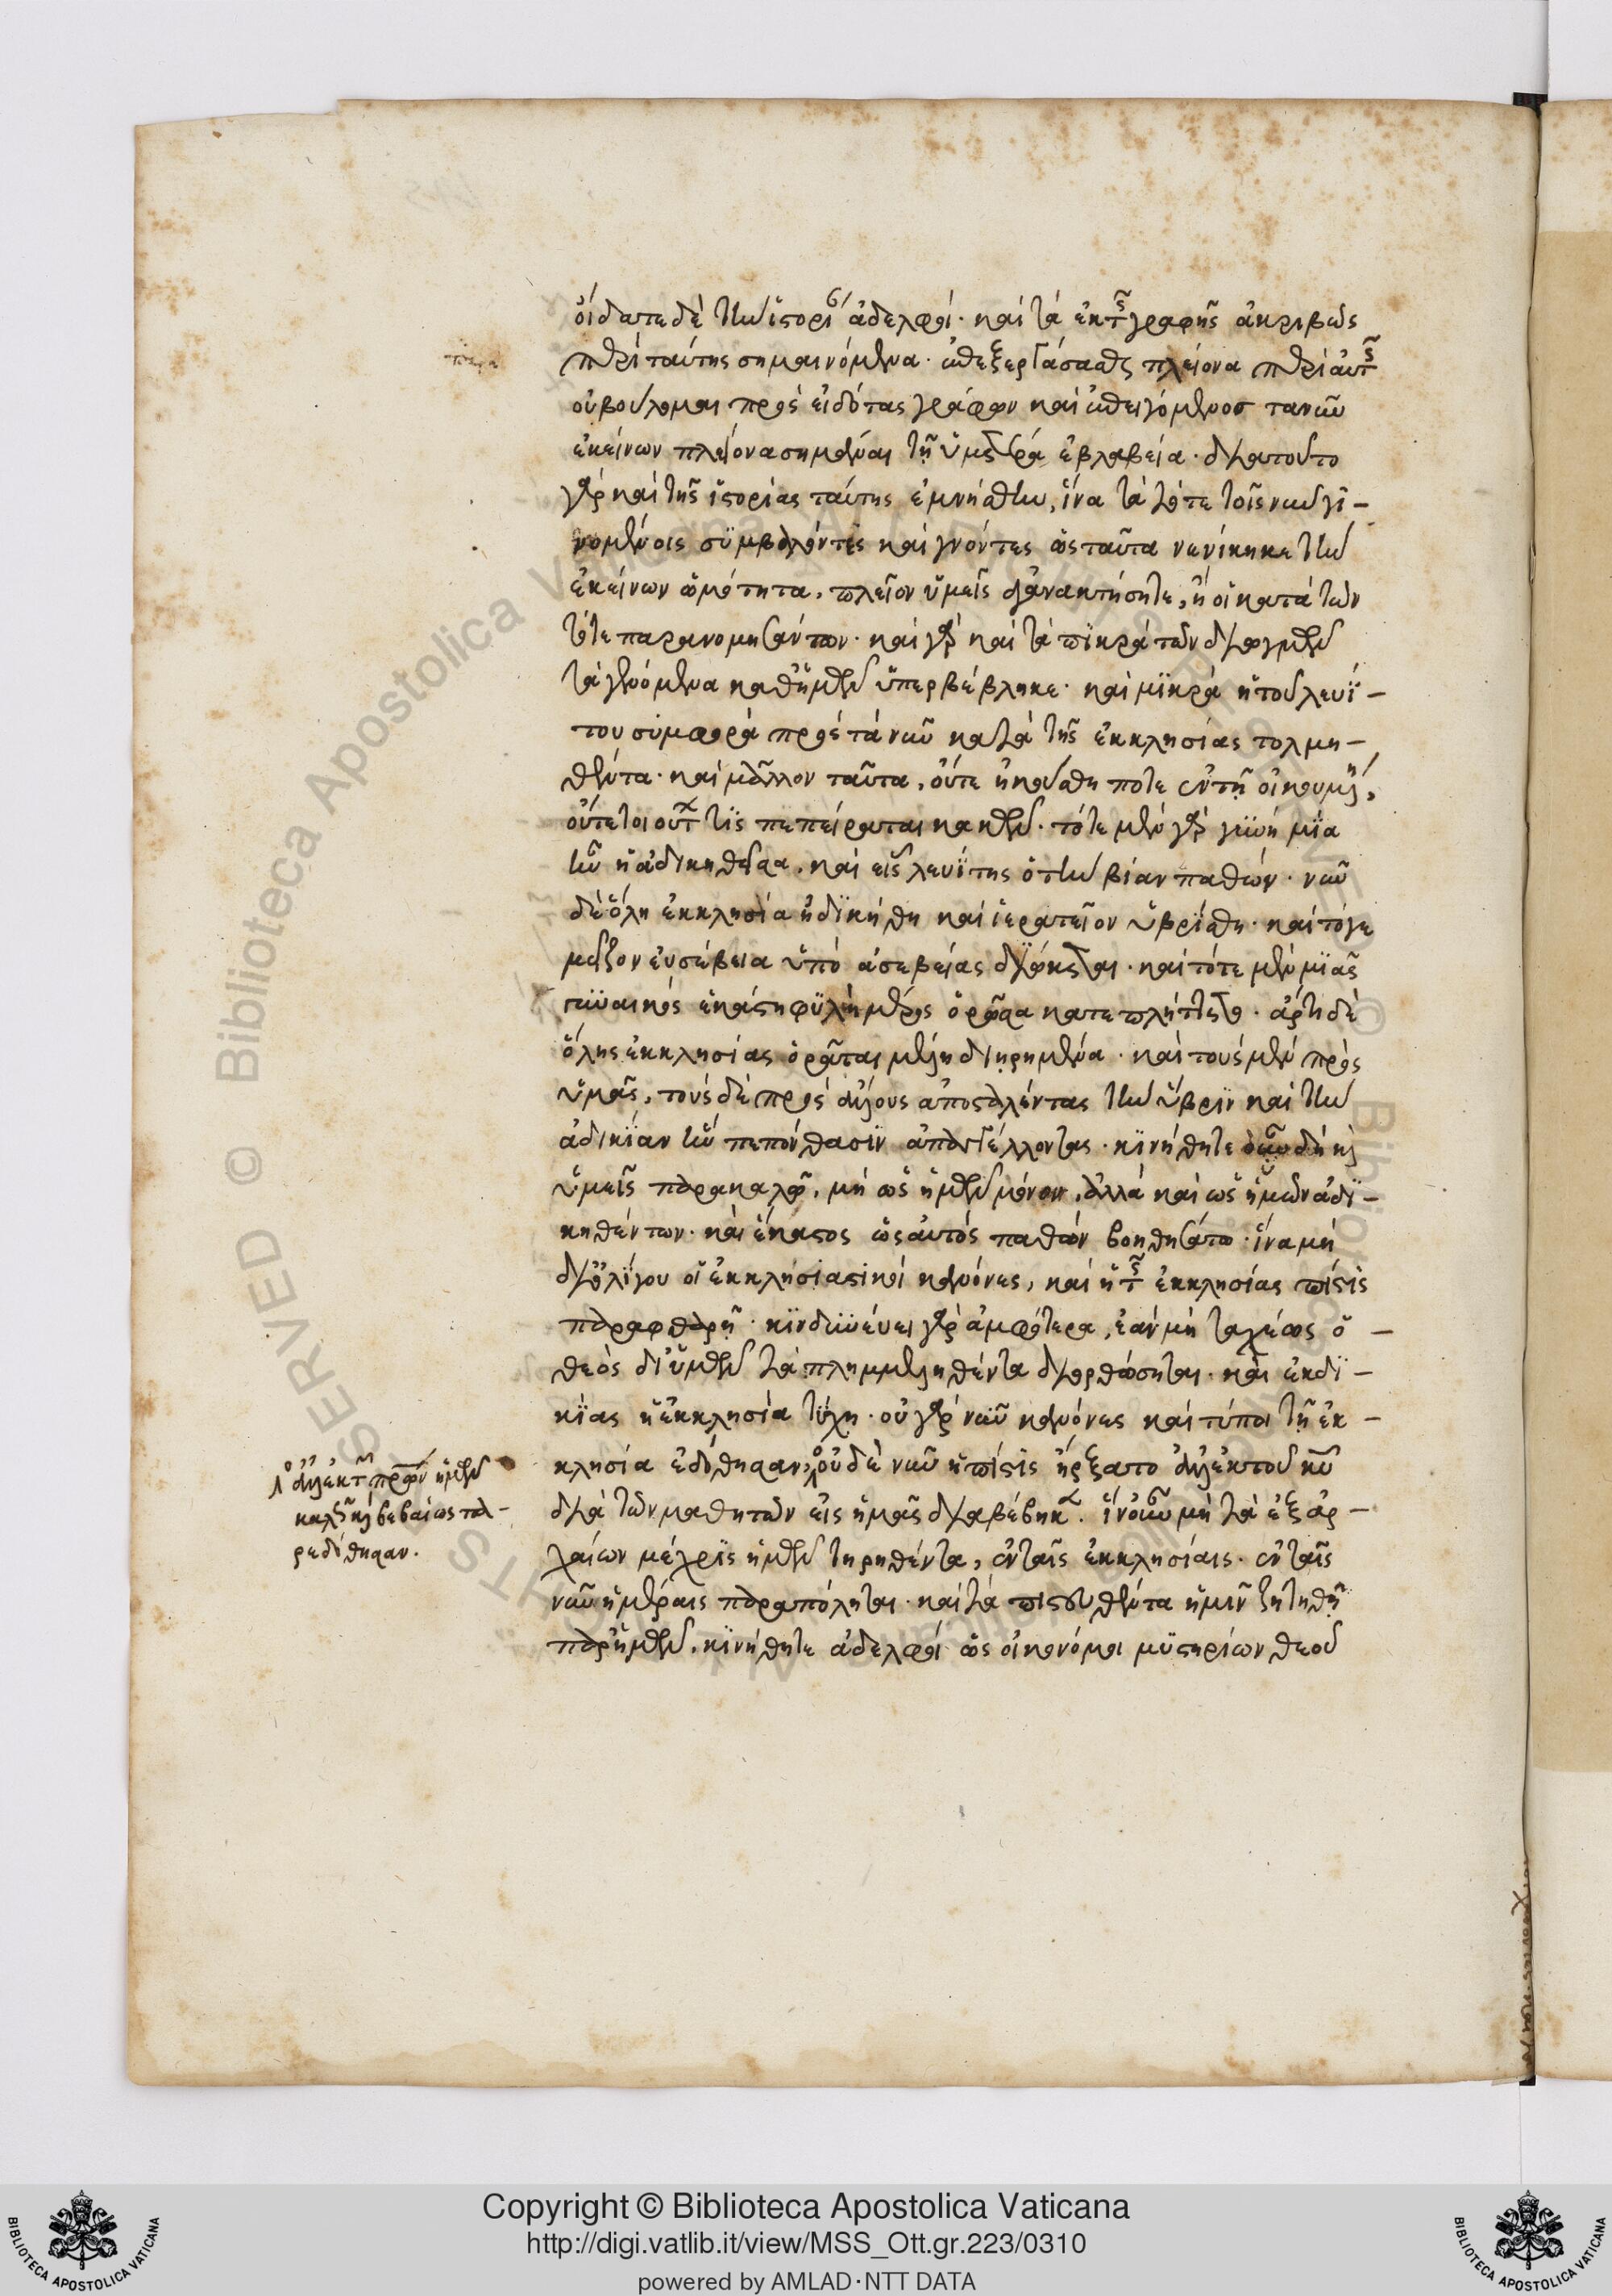 οἴδατε δὲ τὴν ἱστορίαν ἀδελφοί· καὶ τὰ ἐκ τῆς γραφῆς ἀκριβῶς
περὶ ταύτης σημαινόμενα· ἐπεξεργάσασθαι πλείονα περὶ αὐτῆς
οὐ βούλομαι πρὸς εἰδότας γράφων καὶ ἐπειγόμενος τανῦν
ἐκείνων πλείονα σημᾶναι τῇ ὑμετέρα εὐλαβεία· διατοῦτο
γὰρ καὶ τῆς ἱστορίας ταύτης ἐμνήσθην, ἵνα τὰ τότε τοῖς νῦν γι-
νομένοις συμβαλόντες καὶ γνόντες ὡς ταῦτα νενίκηκε τὴν
ἐκείνων ὠμότητα, πλεῖον ὑμεῖς ἀγανακτήσητε, ἢ οἱ κατὰ τῶν
τότε παρανομησάντων· καὶ γὰρ καὶ τὰ πικρὰ τῶν διωγμῶν
τὰ γενόμενα καθ' ἡμῶν ὑπερβέβληκε· καὶ μικρὰ ἡ τοῦ λευί-
του συμφορὰ πρὸς τὰ νῦν κατὰ τῆς ἐκκλησίας τολμη-
θέντα· καὶ μᾶλλον ταῦτα, οὔτε ἠκούσθη ποτε ἐν τῇ οἰκουμένῃ,
οὔτε τοιοῦτον τὶς πεπείραται κακῶν· τότε μὲν γὰρ γυνὴ μία
ἦν ἡ ἀδικηθεῖσα, καὶ εἷς λευίτης ὁ τὴν βίαν παθών· νῦν
δὲ ὅλη ἐκκλησία ἠδικήθη καὶ ἱερατεῖον ὑβρίσθη· καὶ τόγε
μεῖζον εὐσέβεια ὑπὸ ἀσεβείας διώκεται· καὶ τότε μὲν μιᾶς
γυναικὸς ἑκάστη φυλὴ μέρος ὁρῶσα κατεπλήττετο· ἄρτι δὲ
ὅλης ἐκκλησίας ὁρᾶται μέλη διῃρημένα· καὶ τοὺς μὲν πρὸς
ὑμᾶς, τοὺς δὲ πρὸς ἄλλους ἀποσταλέντας τὴν ὕβριν καὶ τὴν
ἀδικίαν ἣν πεπόνθασιν ἀπαγγέλλοντας· κινήθητε οὖν δὴ καὶ
ὑμεῖς παρακαλῶ, μὴ ὡς ἡμῶν μόνον, ἀλλὰ καὶ ὡς ὑμῶν ἀδι-
κηθέντων· καὶ ἕκαστος ὡς αὐτὸς παθὼν βοηθησάτω· ἵνα μὴ
δι' ὀλίγου οἱ ἐκκλησιαστικοὶ κανόνες, καὶ ἡ τῆς ἐκκλησίας πίστις
παραφθαρῇ· κινδυνεύει γὰρ ἀμφότερα, ἐὰν μὴ ταχέως ὁ -
θεὸς δι' ὑμῶν τὰ πλημμεληθέντα διορθώσηται· καὶ ἐκδι-
κίας ἡ ἐκκλησία τύχῃ· οὐ γὰρ νῦν κανόνες καὶ τύποι τῇ ἐκ-
κλησία ἐδόθησαν, οὐδὲ νῦν ἡ πίστις ἤρξατο ἀλλ' ἐκ τοῦ κυ
διὰ τῶν μαθητῶν εἰς ἡμᾶς διαβέβηκεν· ἵν' οὖν μὴ τὰ ἐξ ἀρ-
χαίων μέχρις ἡμῶν τηρηθέντα, ἐν ταῖς ἐκκλησίαις· ἐν ταῖς
νῦν ἡμέραις παραπόληται· καὶ τὰ πιστευθέντα ἡμῖν ζητηθῇ
παρ' ἡμῶν, κινήθητε ἀδελφοὶ ὡς οἰκονόμοι μυστηρίων θεοῦ
ἀλλ' ἐκ τῶν πρὸ ἡμῶν
καλῶς καὶ βεβαίως πα-
ρεδόθησαν.
Copyright © Biblioteca Apostolica Vaticana
http://digi.vatlib.it/view/MSS_Ott.gr.223/0310
powered by AMLAD·NTT DATA